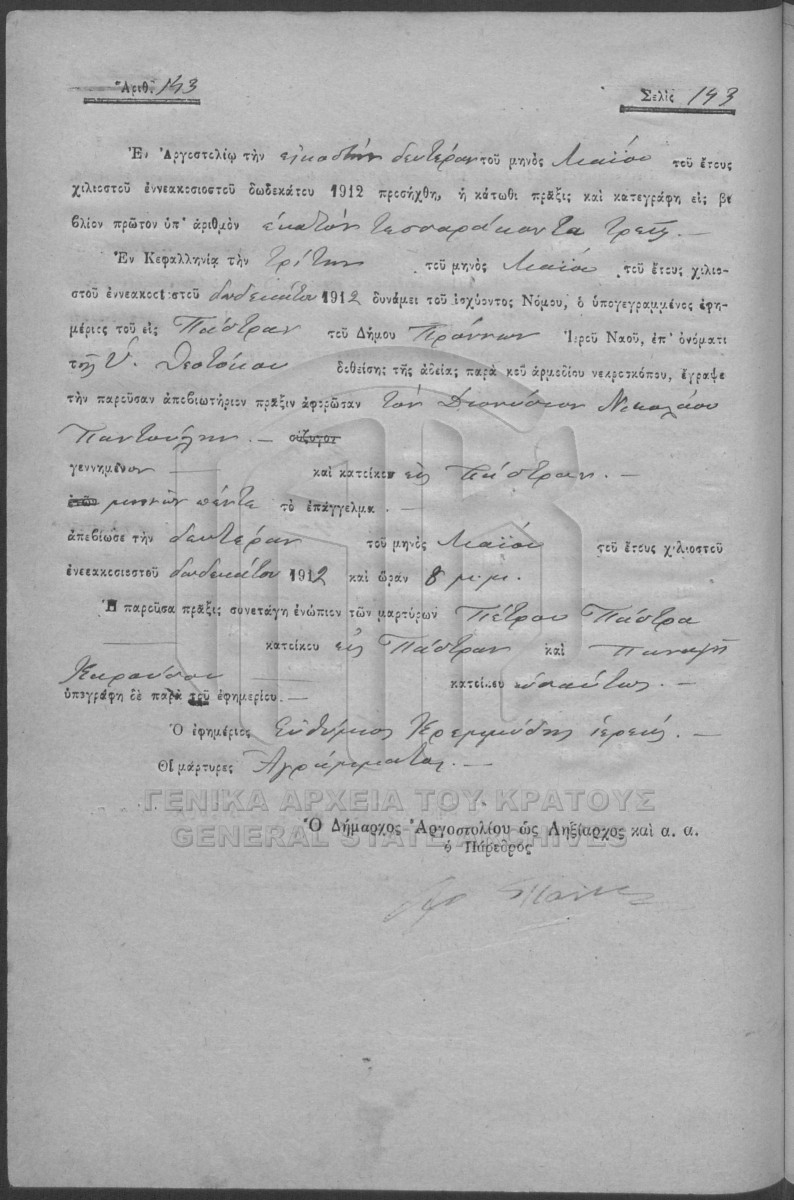 Ἀριθ. 143
Σελὶς 143
Ἐν Ἀργοστολίῳ τὴν εἰκοστὴν δευτέραν τοῦ μηνὸς Μαΐου τοῦ ἔτους
χιλιοστοῦ ἐννεακοσιοστοῦ δωδεκάτου 1912 προσήχθη, ἡ κάτωθι πρᾶξις καὶ κατεγράφη εἰς βι
βλίον πρῶτον ὑπ' ἀριθμὸν ἑκατὸν τεσσαράκοντα τρεῖς.—
Ἐν Κεφαλληνίᾳ τὴν τρίτην τοῦ μηνὸς Μαΐου τοῦ ἔτους χιλιο-
στοῦ ἐννεακοσιοστοῦ δωδεκάτου 1912 δυνάμει τοῦ ἰσχύοντος Νόμου, ὁ ὑπογεγραμμένος ἐφη-
μέριος τοῦ εἰς Πάστραν τοῦ Δήμου Πρόννων Ἱεροῦ Ναοῦ, ἐπ' ὀνόματι
τῆς Ὑ. Θεοτόκου δοθείσης τῆς ἀδείας παρὰ τοῦ ἁρμοδίου νεκροσκόπου, ἔγραψε
τὴν παροῦσαν ἀποβιωτήριον πρᾶξιν ἀφορῶσαν τὸν Διονύσιον Νικολάου
Παντούλην.— σύζυγον
γεννημένον — καὶ κάτοικον εἰς Πάστραν.—
ἐτῶν μηνῶν πέντε τὸ ἐπάγγελμα .—
ἀπεβίωσε τὴν δευτέραν τοῦ μηνὸς Μαΐου τοῦ ἔτους χιλιοστοῦ
ἐννεακοσιοστοῦ δωδεκάτου 1912 καὶ ὥραν 8 μ.μ.
Ἡ παροῦσα πρᾶξις συνετάγη ἐνώπιον τῶν μαρτύρων Πέτρου Πάστρα
— κατοίκου εἰς Πάστραν καὶ Παναγῆ
Καρούσου — κατοίκου ὡσαύτως.—
ὑπεγράφη δὲ παρὰ τοῦ ἐφημερίου.—
Ὁ ἐφημέριος Εὐθύμιος Κρεμμύδης ἱερεύς.—
Οἱ μάρτυρες Ἀγράμματοι.—
ΓΕΝΙΚΑ ΑΡΧΕΙΑ ΤΟΥ ΚΡΑΤΟΥΣ
GENERAL STATE ARCHIVES
Ὁ Δήμαρχος Ἀργοστολίου ὡς Ληξίαρχος καὶ α. α.
ὁ Πάρεδρος